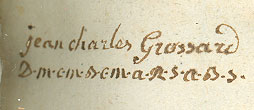 jean charles Grossard
D·m·cm·D·cm·a·R·S·A·B·S·